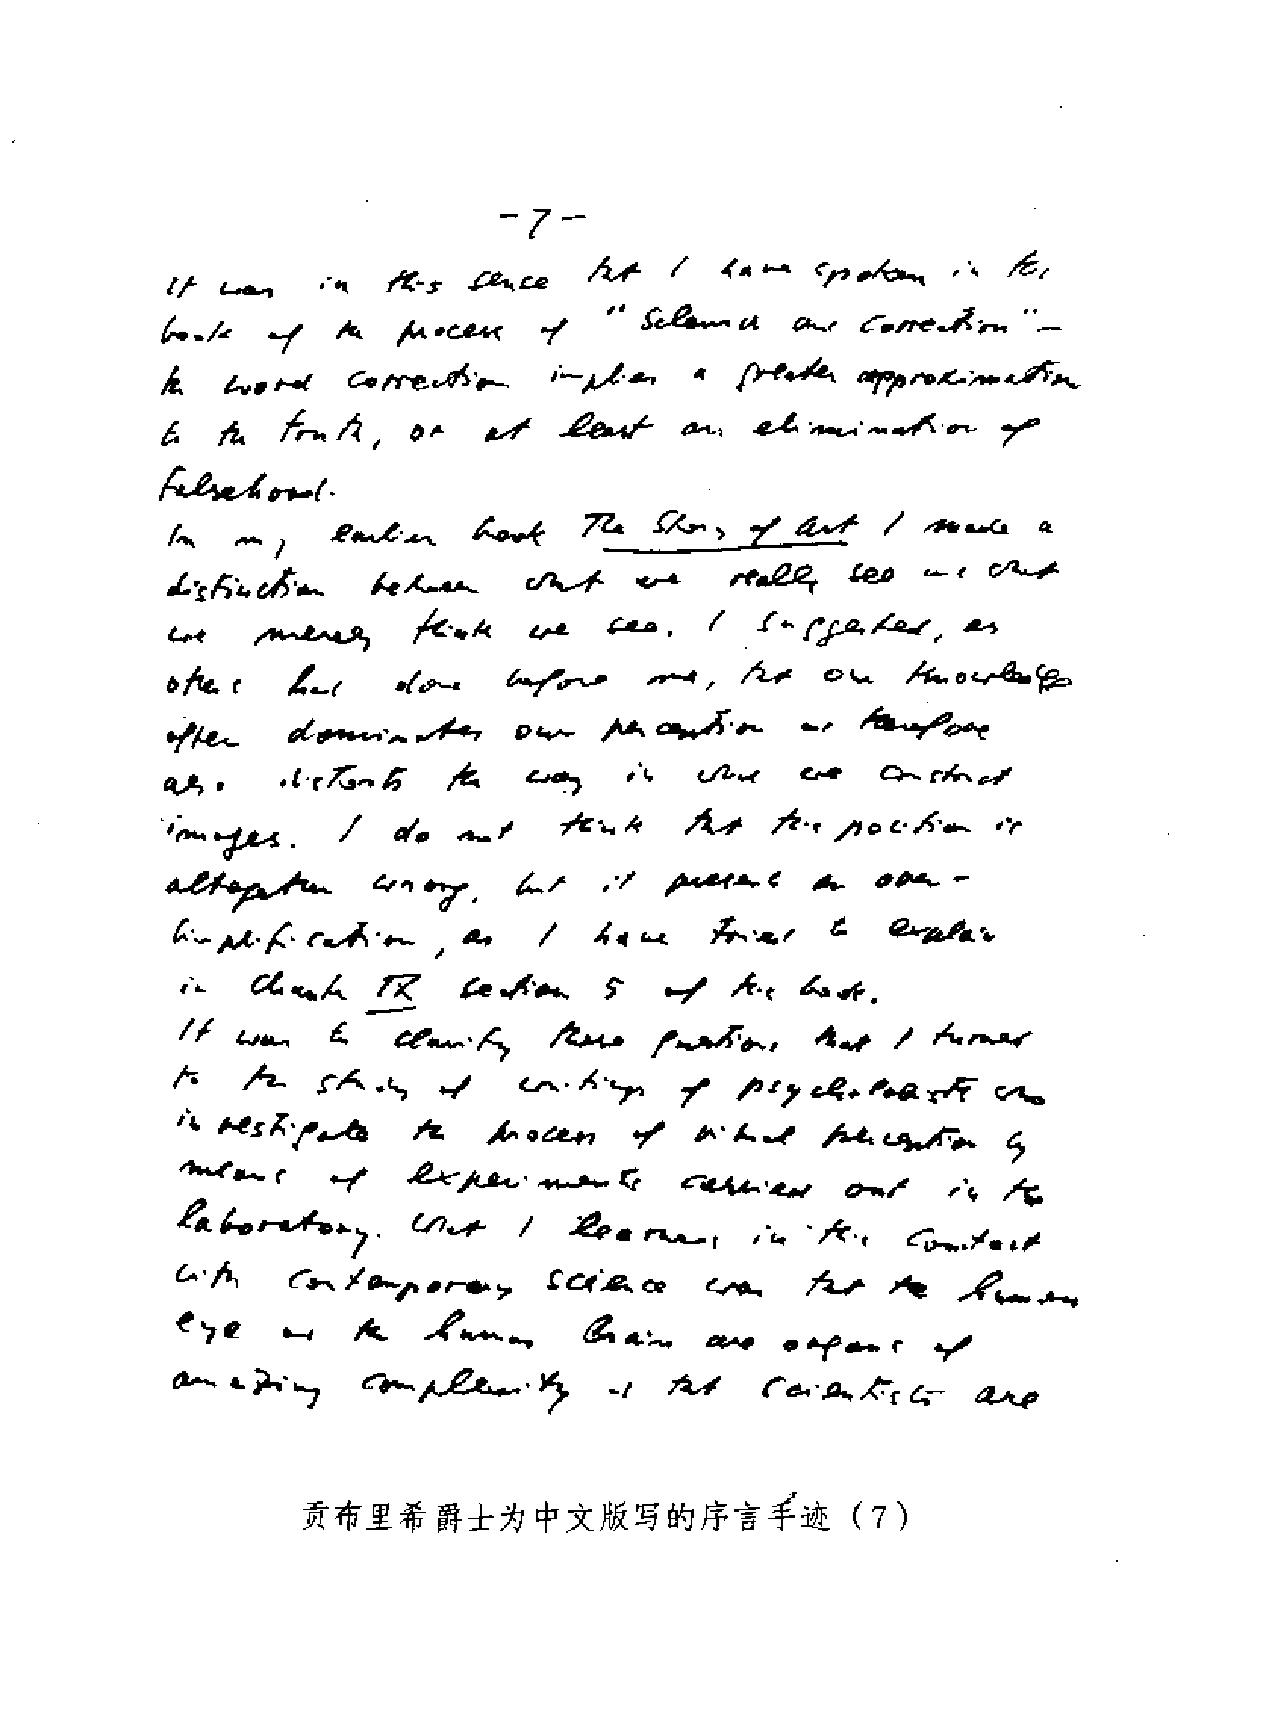 -7-
It was in this sence that I have spoken in this
book of the process of "Schemas and Correction" -
the word correction implies a greater approximation
to the truth, or at least an elimination of
falsehood.
In my earlier book The Story of Art I made a
distinction between what we really see and what
we merely think we see. I suggested, as
others had done before me, that our knowledge
often dominates our perception and therefore
also distorts the way in which we construct
images. I do not think that this position is
altogether wrong, but it presents an over-
simplification, as I have tried to explain
in Chapter IX section 5 of this book.
It was to clarify these questions that I turned
to the study of writings of psychologists who
investigate the process of visual perception by
means of experiments carried out in the
laboratory. What I learned in this contact
with contemporary science was that the human
eye and the human brain are organs of
amazing complexity and that scientists are
贡布里希爵士为中文版写的序言手迹（7）